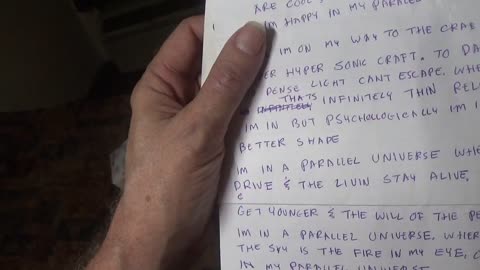 ARE COOL
IM HAPPY IN MY PARALLEL
IM ON MY WAY TO THE CRAB
ER HYPER SONIC CRAFT. TO DA
DENSE LIGHT CANT ESCAPE. WHE
THATS INFINITELY THIN REL
IM IN BUT PSYCHOLOGICALLY IM I
BETTER SHAPE
IM IN A PARALLEL UNIVERSE WHE
DRIVE & THE LIVIN STAY ALIVE,
C
GET YOUNGER & THE WILL OF THE PE
IM IN A PARALLEL UNIVERSE. WHER
THE SKY IS THE FIRE IN MY EYE,
IN MY PARALLEL UNIVERSE